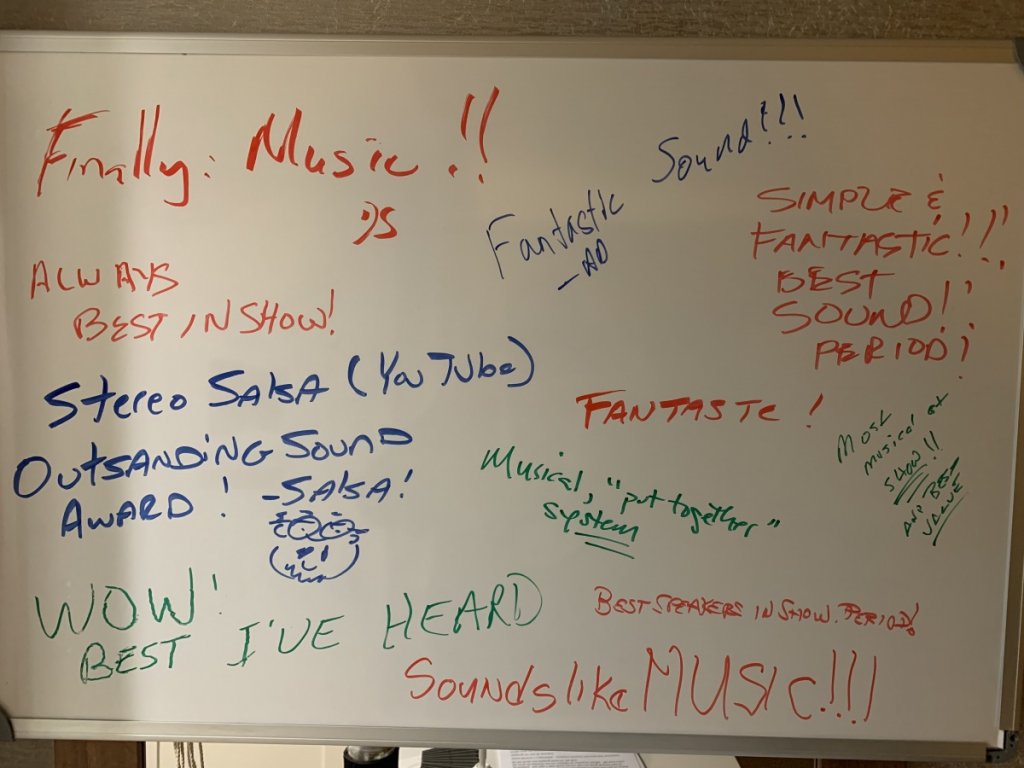 Finally: Music!!
JS
Fantastic Sound!!!
—AD
SIMPLE &
FANTASTIC!!!
BEST
SOUND!
PERIOD!
ALWAYS
BEST IN SHOW!
Stereo SALSA (YouTube)
OUTSANDING SOUND
AWARD! -SALSA!
FANTASTC!
Musical, "put together"
system
Most
musical at
SHOW!!
AND BEST
VALUE
WOW!
BEST I'VE HEARD
BEST SPEAKERS IN SHOW. PERIOD!
Sounds like MUSIC!!!